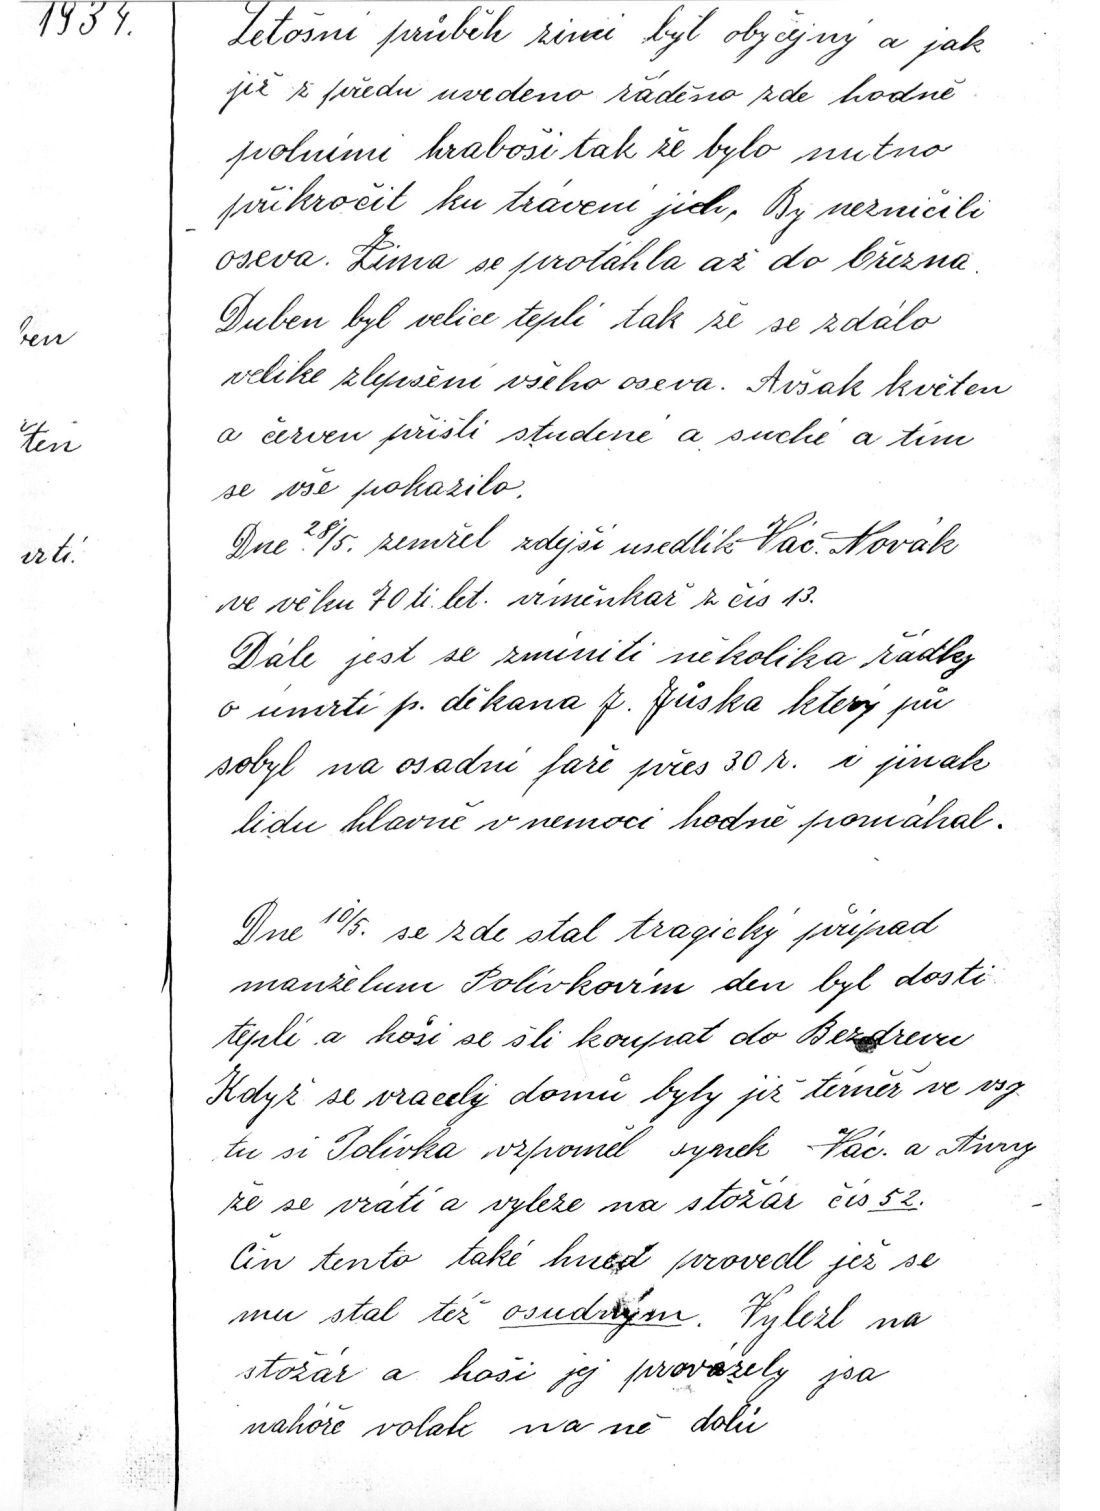 1934.
Letošni průběh zimi byl obyčejný a jak
již z předu uvedeno řáděno zde hodně
polnimi hraboši tak že bylo nutno
přikročit ku tráveni jich, By nezničili
oseva. Zima se protáhla až do března.
Duben byl velice tepli tak že se zdálo
ben
velike zlepšéni všeho oseva. Avšak květen
a červen přišli studené a suché a tim
ten
se vše pokazilo.
Dne 28/5. zemřel zdejši usedlik Vác. Novák
rti.
ve věku 70 ti let. viměnkař z čis 13.
Dále jest se zminiti několika řádky
o úmrti p. děkana J. Jůska který pů
sobyl na osadni faře přes 30 r. i jinak
lidu hlavně v nemoci hodně pomáhal.
Dne 10/5. se zde stal tragický připad
manželum Polivkovim den byl dosti
tepli a hoši se šli koupat do Bezdrevu
Když se vracely domů byly již téměř ve vsy
tu si Polivka vzpoměl synek Vác. a Anny
že se vráti a vyleze na stožár čis 52.
Čin tento také hned provedl jež se
mu stal též osudným. Vylezl na
stožár a hoši jej provázely jsa
nahóře volal na ně dolů